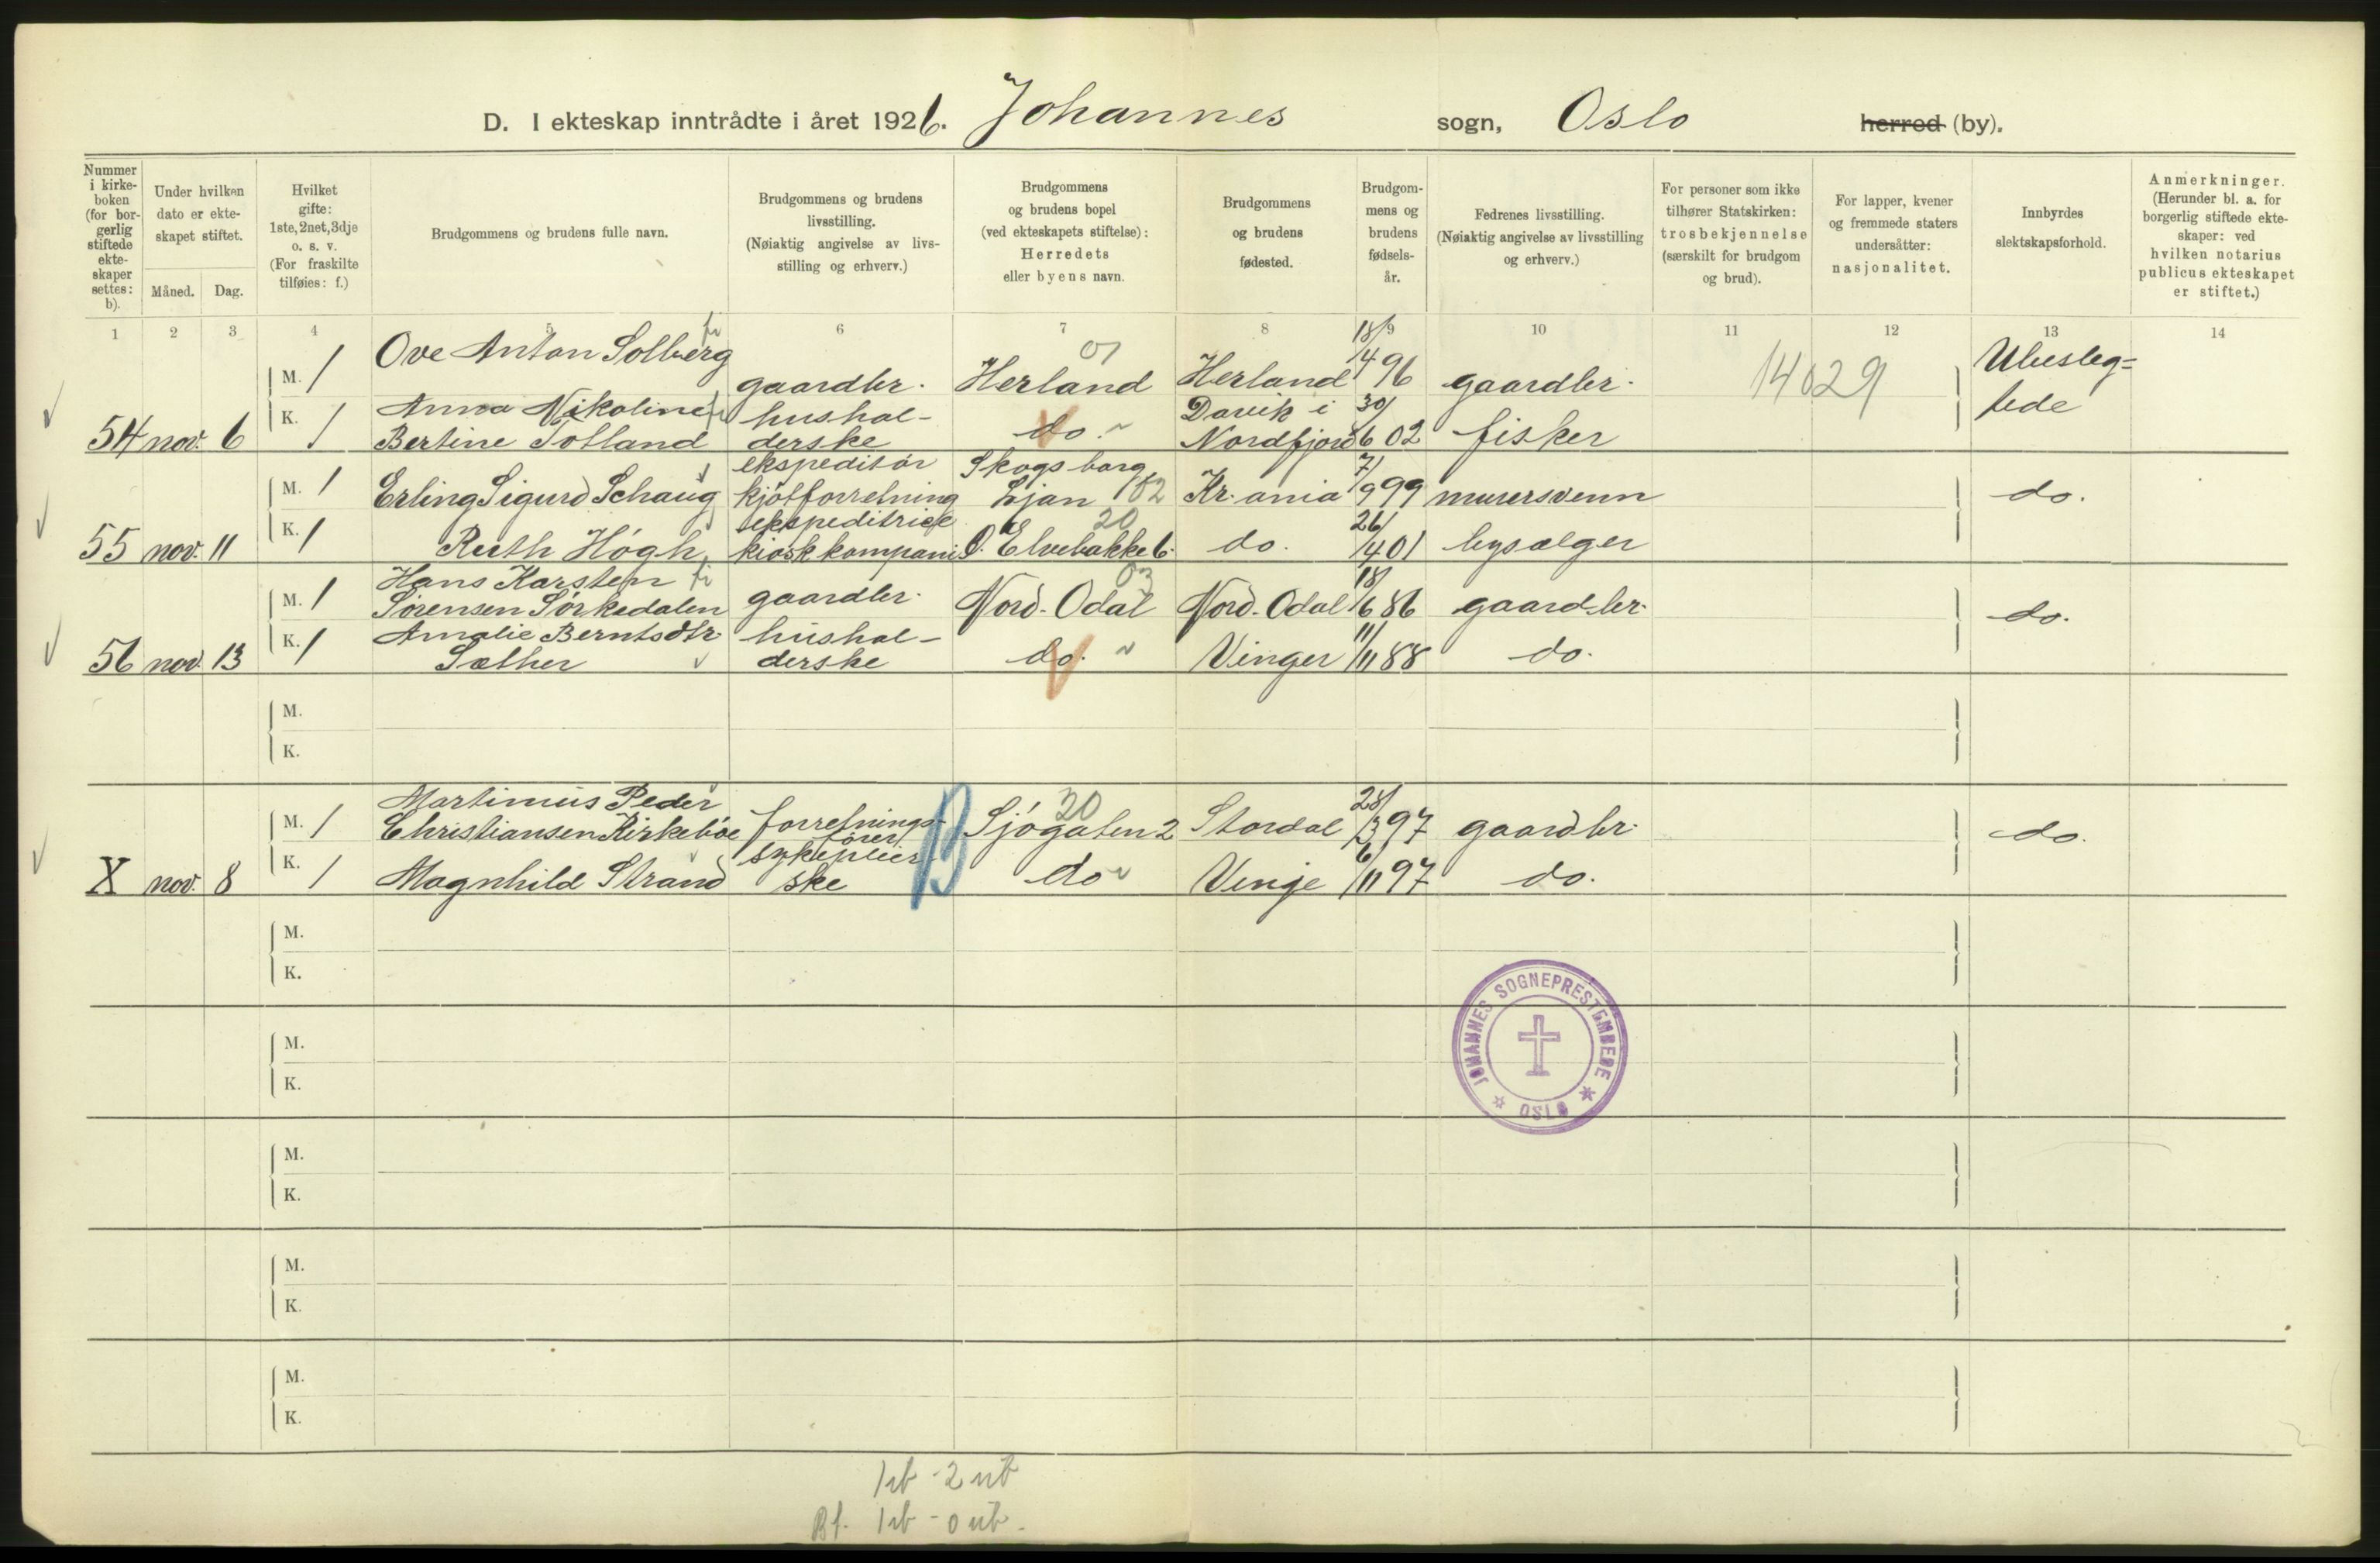 D. I ekteskap inntrådte i året 1926. Johannes sogn, Oslo herred (by).
Nummer i kirke-boken (for bor-gerlig stiftede ekte-skaper settes: b).
Under hvilken dato er ekte-skapet stiftet.
Måned. Dag.
Hvilket gifte: 1ste, 2net, 3dje o. s. v. (For fraskilte tilføies: f.)
Brudgommens og brudens fulle navn.
Brudgommens og brudens livsstilling. (Nøiaktig angivelse av livs-stilling og erhverv.)
Brudgommens og brudens bopel (ved ekteskapets stiftelse): Herredets eller byens navn.
Brudgommens og brudens fødested.
Brudgom-mens og brudens fødsels-år.
Fedrenes livsstilling. (Nøiaktig angivelse av livsstilling og erhverv.)
For personer som ikke tilhører Statskirken: trosbekjennelse (særskilt for brudgom og brud).
For lapper, kvener og fremmede staters undersåtter: nasjonalitet.
Innbyrdes slektskapsforhold.
Anmerkninger. (Herunder bl. a. for borgerlig stiftede ekte-skaper: ved hvilken notarius publicus ekteskapet er stiftet.)
1 2 3 4 5 6 7 8 9 10 11 12 13 14
M. 1 Ove Anton Solberg gaardbr. Herland 01 Herland 18/4 96 gaardbr. 14029 Ubesleg=
tede
54 nov. 6 K. 1 Anna Nikoline
Bertine Totland
hushol-
derske
do.
Davik i
Nordfjord
30/6 02 fisker
M. 1 Erling Sigurd Schaug
ekspeditør
kjötforretning
Skogsborg
Ljan 02
Kr.ania 7/9 99 murersvenn do.
55 nov. 11 K. 1 Ruth Högh
ekspeditrice
kioskkompani
20
Ö. Elvebakke 6.
do. 26/4 01 bysælger
M. 1 Hans Karsten
Sörensen Sörkedalen
gaardbr. 03
Nord-Odal Nord-Odal 18/6 86 gaardbr. do.
56 nov. 13 K. 1 Amalie Berntsdtr.
Sæther
hushol-
derske
do. Vinger 11/11 88 do.
M.
K.
M. 1 Martinius Peder
Christiansen Kirkeböe
forretnings-
förer
B 20
Sjögaten 2 Stordal 28/3 97 gaardbr. do.
X nov. 8 K. 1 Magnhild Strand
sykepleier-
ske
do Vinje 6/11 97 do.
M.
K.
M.
K.
M.
K.
M.
K.
M.
K.
JOHANNES SOGNEPRESTEMBEDE
OSLO
1ub - 2ub
Bf. 1ub - 0ub.